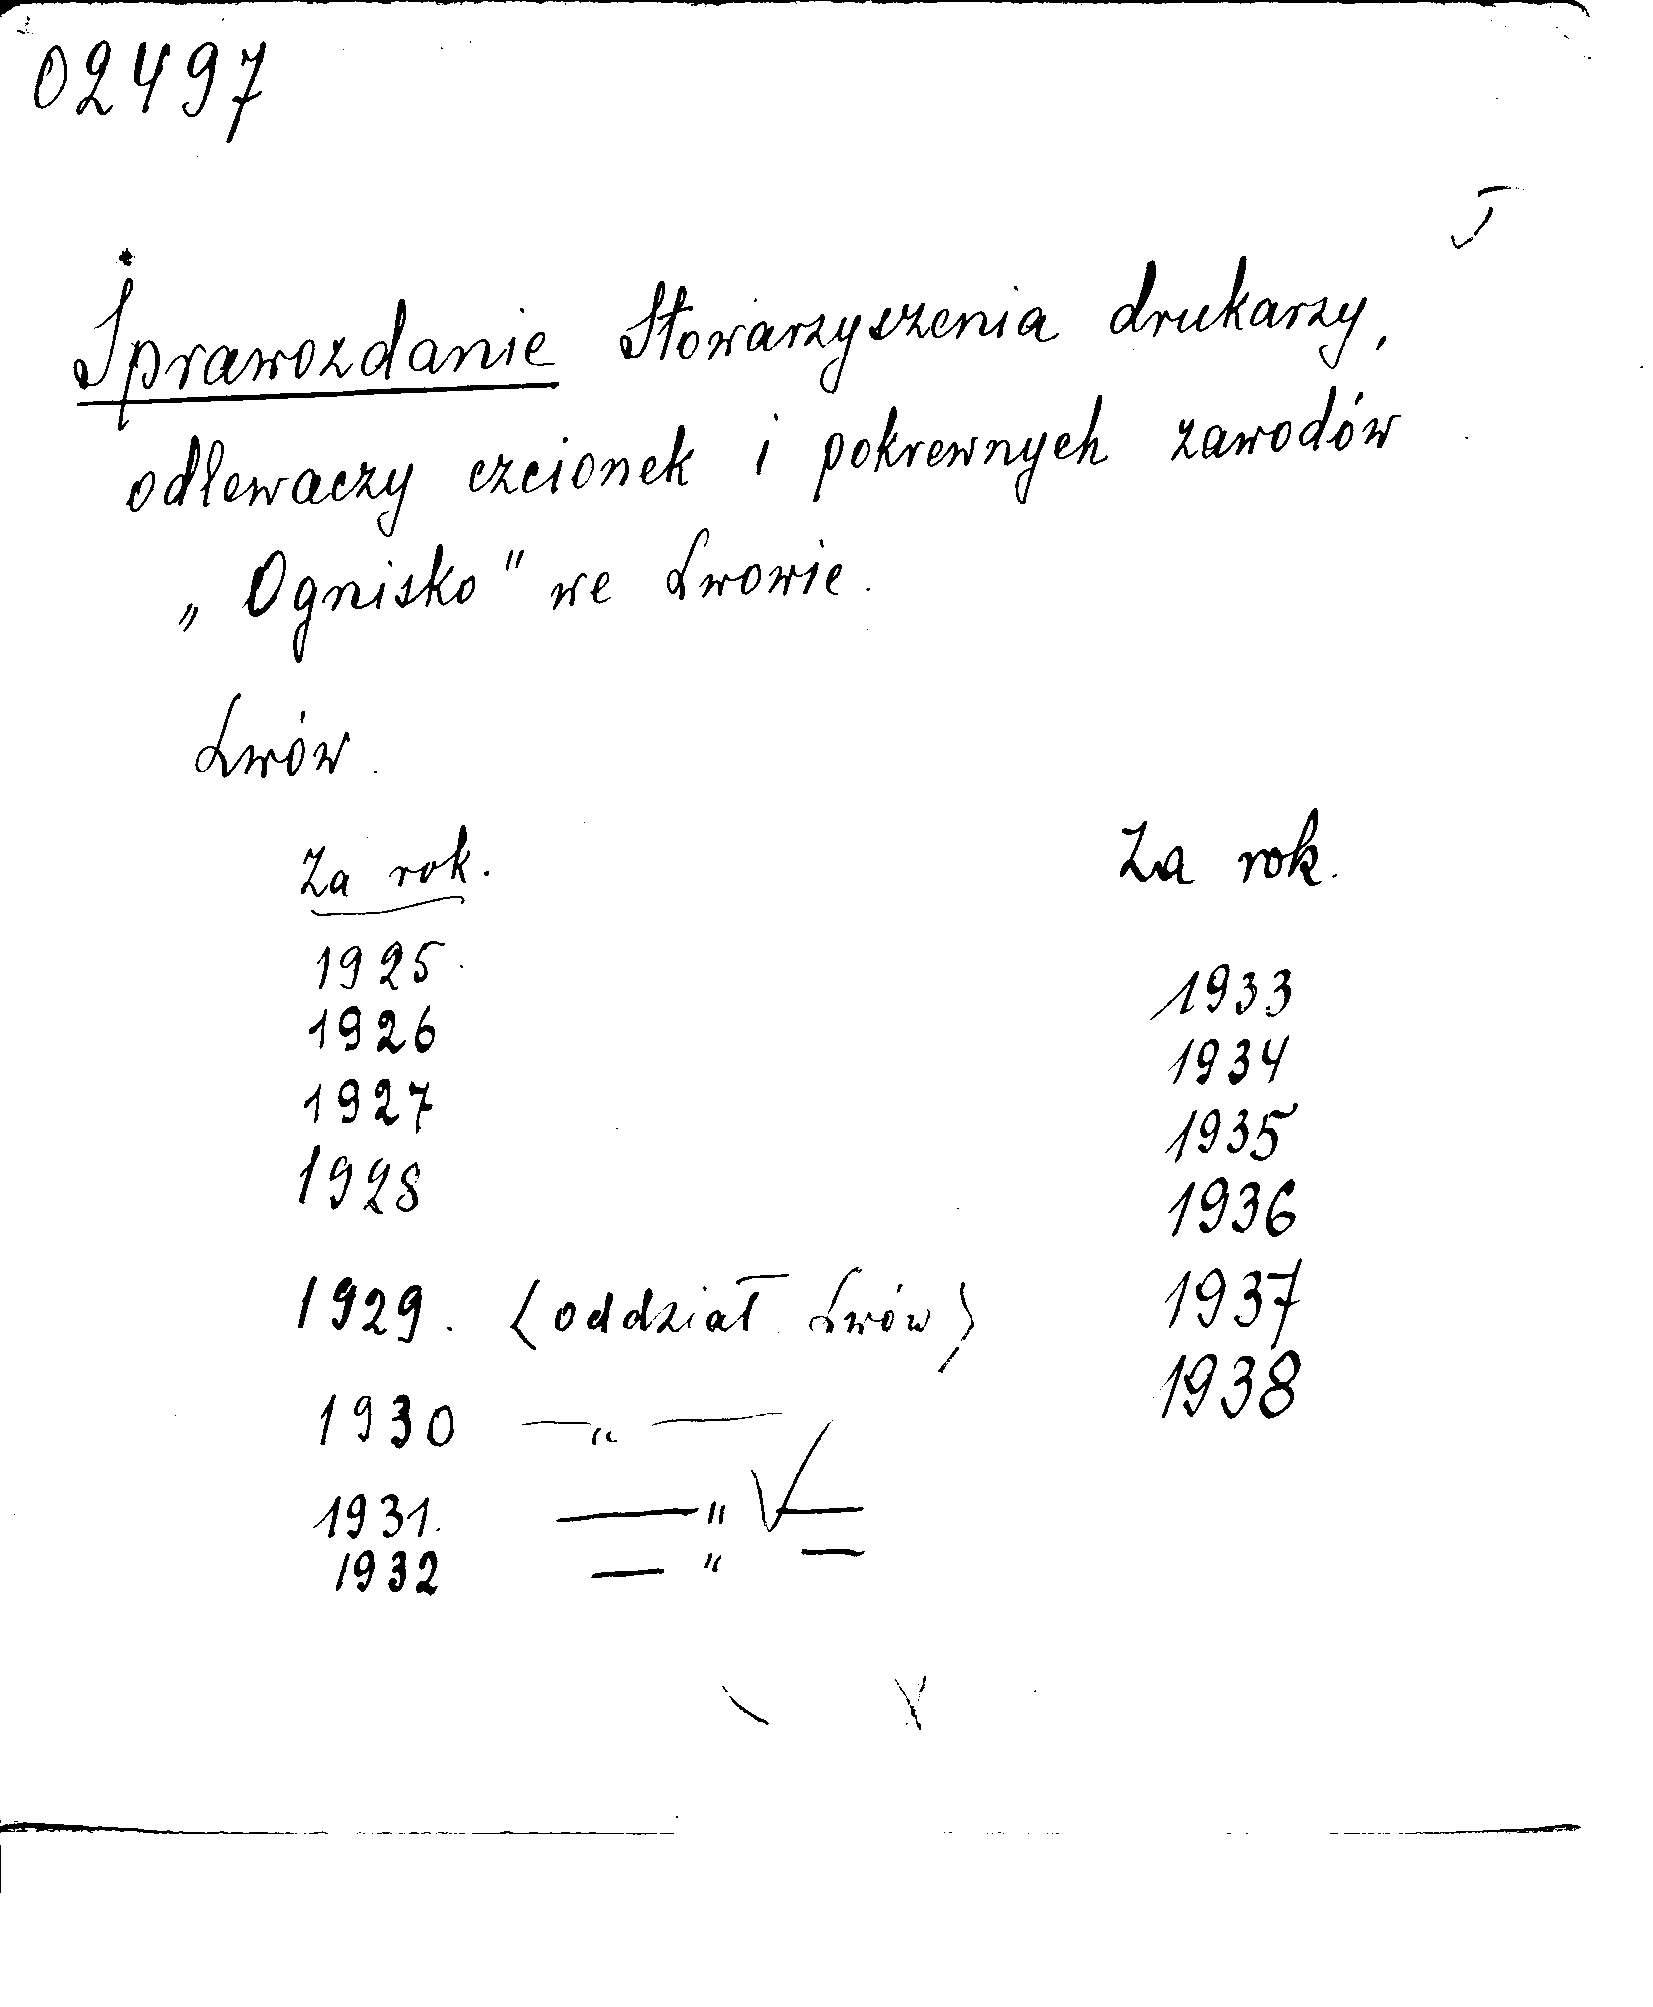 02497
Sprawozdanie Stowarzyszenia drukarzy,
odlewaczy czcionek i pokrewnych zawodów
„Ognisko" we Lwowie.
Lwów.
Za rok.
1925.
1926
1927
1928
1929. (oddział Lwów)
1930 — " —
1931. — " —
1932 — " —
Za rok.
1933
1934
1935
1936
1937
1938